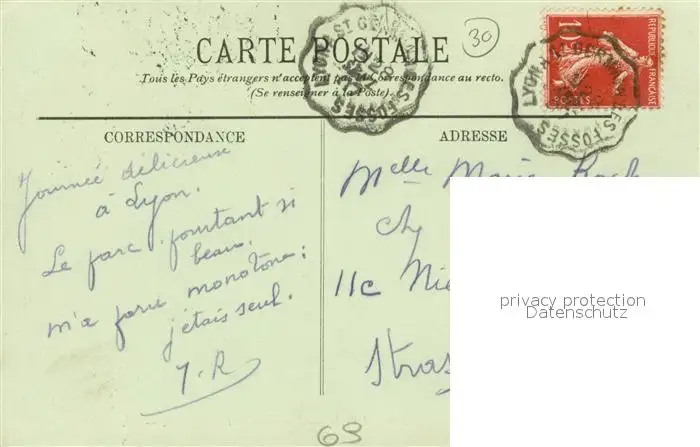 CARTE POSTALE
30
Tous les Pays étrangers n'acceptent pas la Correspondance au recto.
(Se renseigner à la Poste).
RÉPUBLIQUE FRANÇAISE
POSTES
LYON A ST GERMAIN DES FOSSES
CORRESPONDANCE
Journée délicieuse
à Lyon.
Le parc pourtant si
beau,
m'a paru monotone:
j'étais seul.
J. R
ADRESSE
Melle Marie
11c
Stras
privacy protection
Datenschutz
69